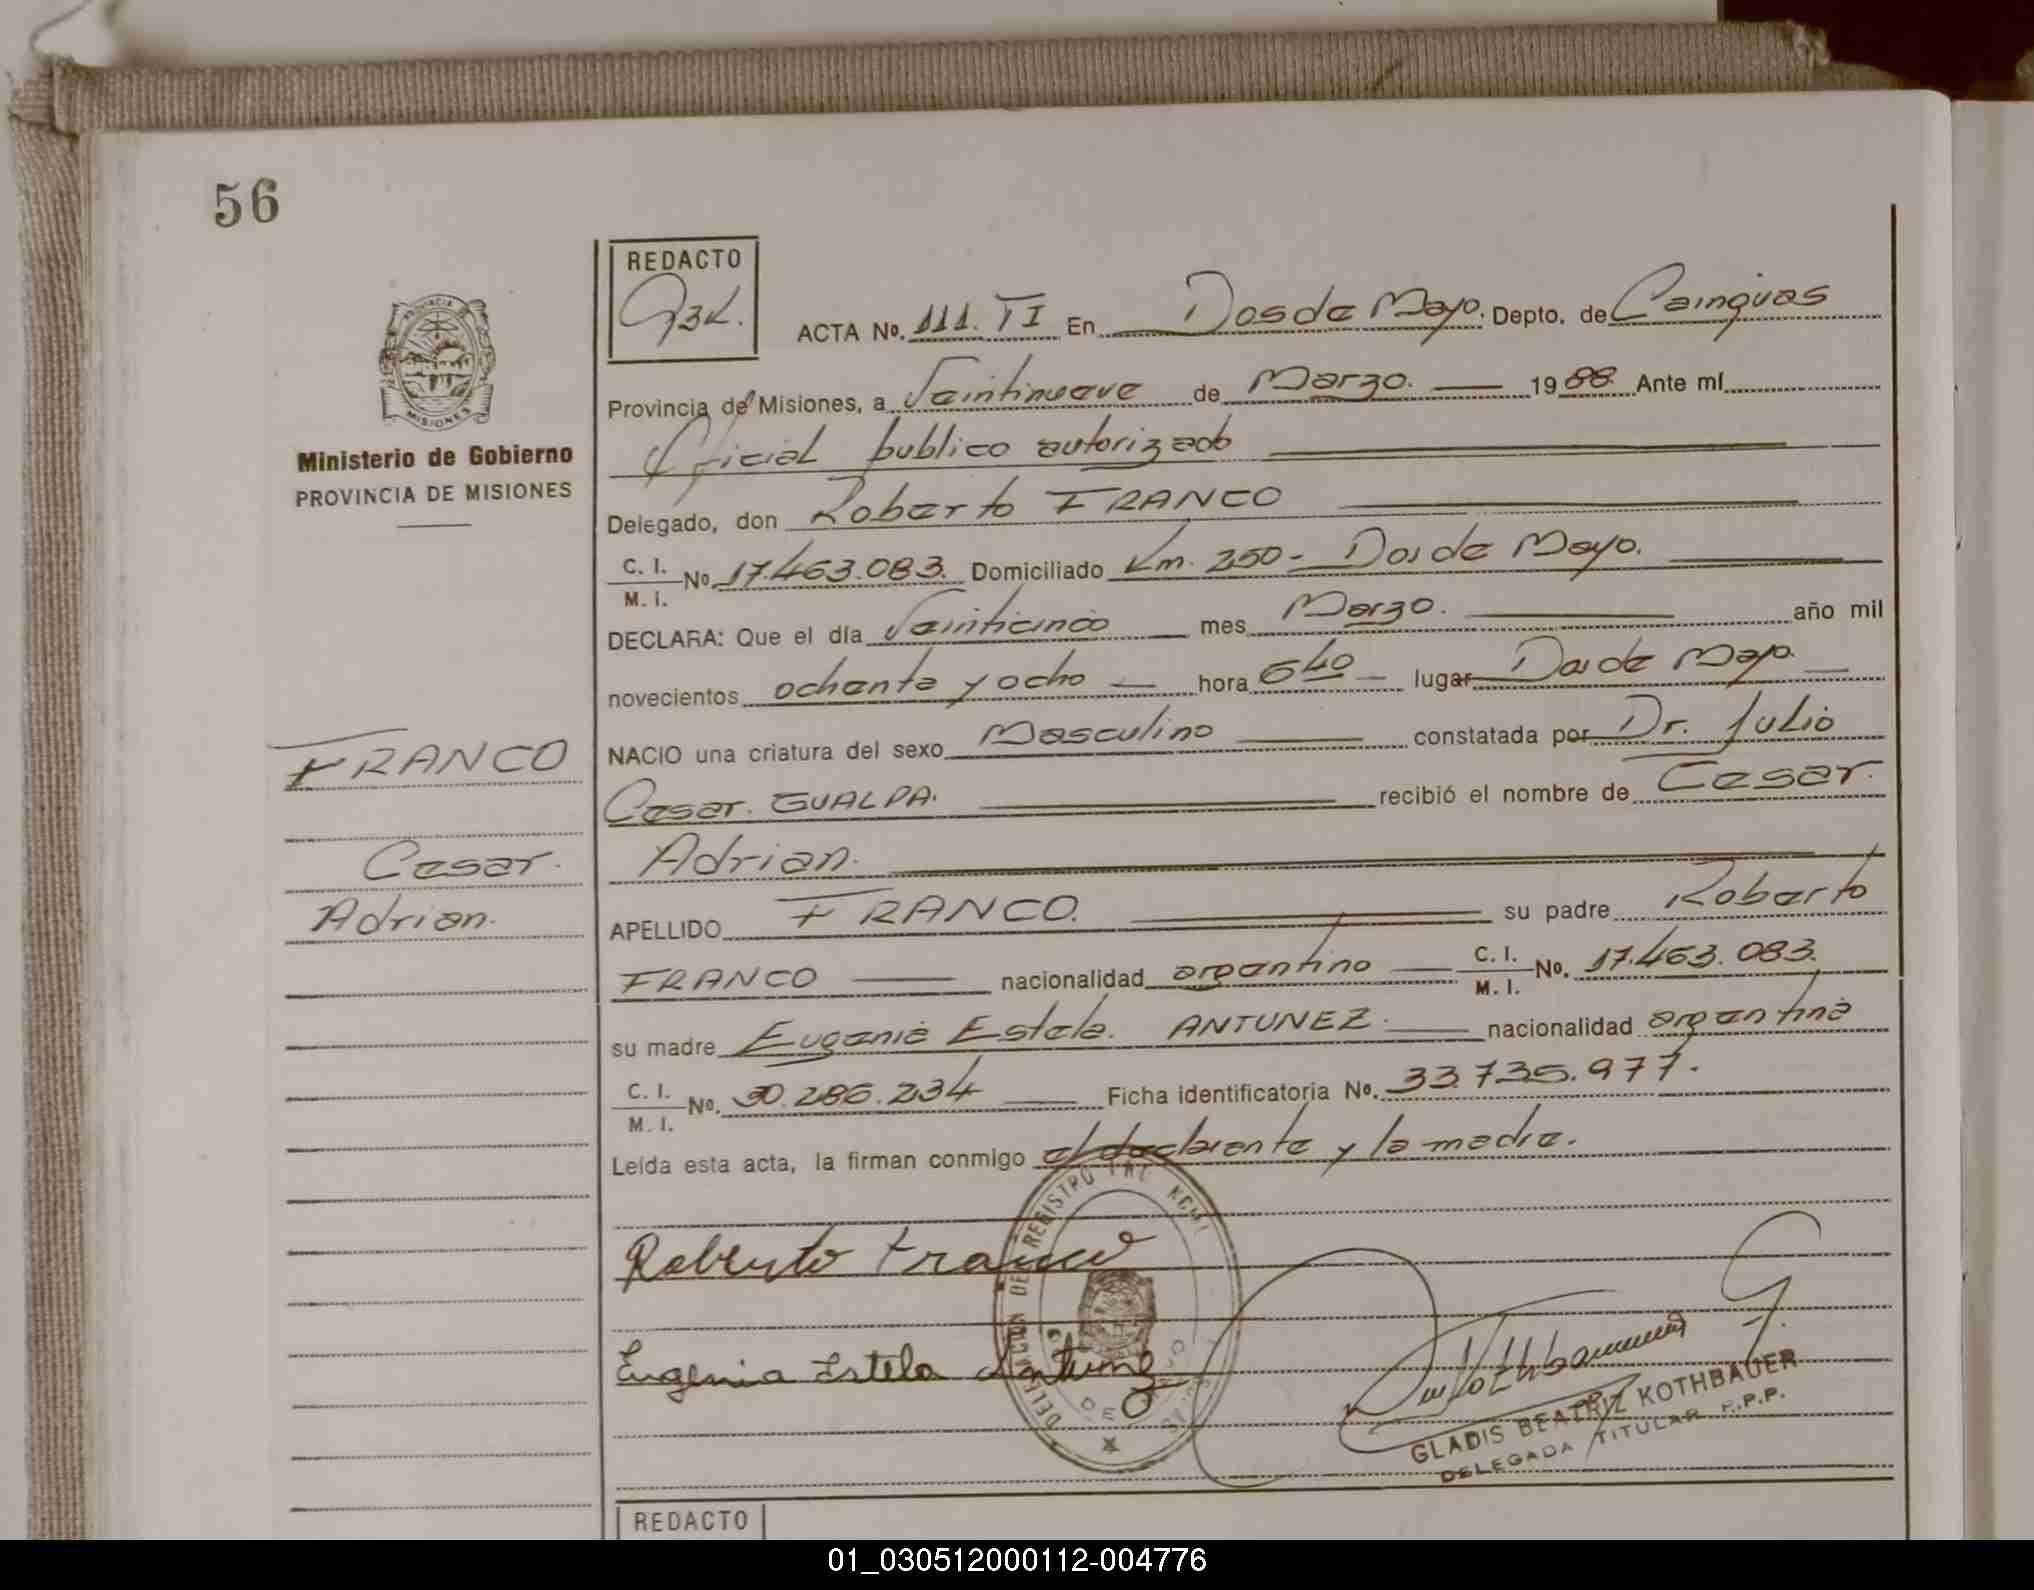 56
PROVINCIA
MISIONES
Ministerio de Gobierno
PROVINCIA DE MISIONES
FRANCO
Cesar.
Adrian.
REDACTO
ACTA No. 111. TI En Dos de Mayo. Depto. de Cainguas
Provincia de Misiones, a Veintinueve de Marzo. 1988. Ante mí
Oficial publico autorizado
Delegado, don Roberto FRANCO
C. I.
M. I. No. 17.463.083. Domiciliado Km. 250 - Dos de Mayo.
DECLARA: Que el día Veinticinco mes Marzo. año mil
novecientos ochenta y ocho hora 6 40 lugar Dos de Mayo.
NACIO una criatura del sexo Masculino constatada por Dr. Julio
Cesar. GUALPA. recibió el nombre de Cesar.
Adrian.
APELLIDO FRANCO. su padre Roberto
FRANCO nacionalidad argentino C. I.
M. I. No. 17.463.083.
su madre Eugenia Estela. ANTUNEZ. nacionalidad argentina
C. I.
M. I. No. 30.286.234 Ficha identificatoria No. 33.735.977.
Leída esta acta, la firman conmigo el declarante y la madre.
Roberto Franco
Eugenia Estela Antunez
GLADIS BEATRIZ KOTHBAUER
DELEGADA TITULAR P.P.P.
REDACTO
01_030512000112-004776